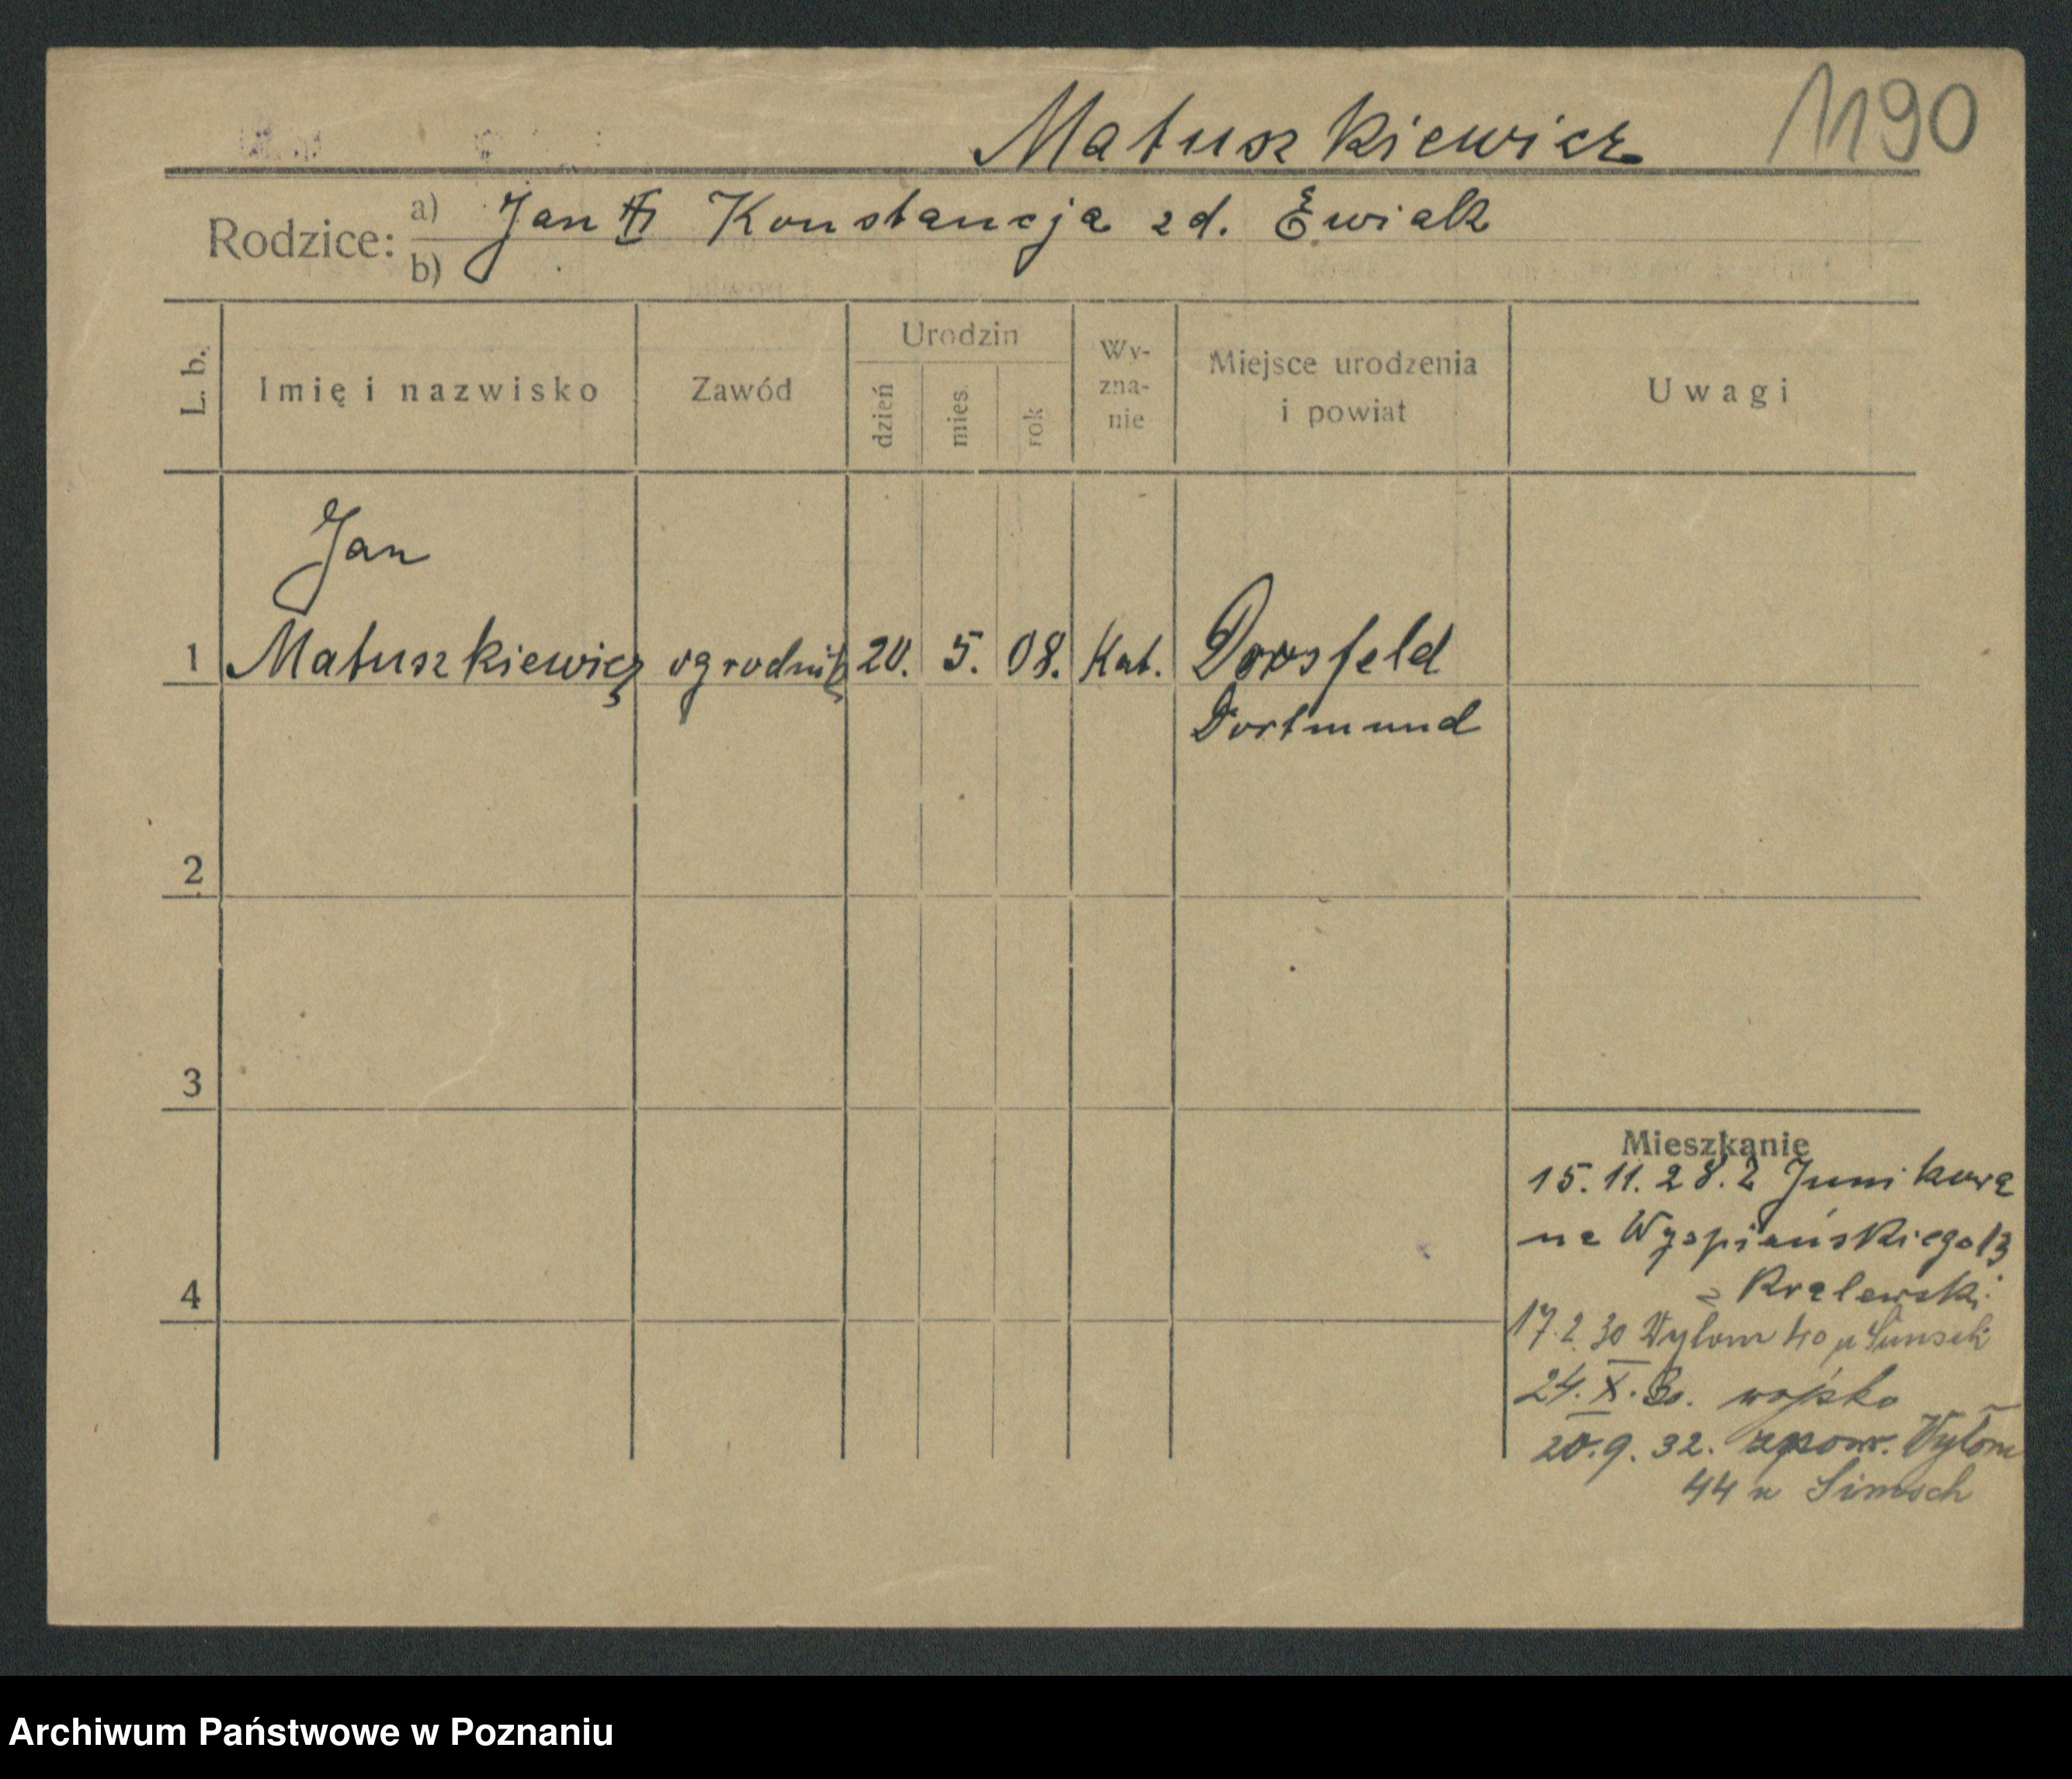 Matuszkiewicz 1190
Rodzice: a) Jan Konstancja zd. Ewiak
b)
L. b.
Imię i nazwisko
Zawód
Urodzin
dzień
mies.
rok
Wy-
zna-
nie
Miejsce urodzenia
i powiat
Uwagi
Jan
1 Matuszkiewicz ogrodnik 20. 5. 08. Kat. Dorsfeld
Dortmund
2
3
4
Mieszkanie
15.11.28. z Junikowa
na Wyspiańskiego 13
Kralewski
17.2.30 Wylom 40
24.X.30. wojsko
20.9.32. zpow. Wyłom
44 u Simsch
Archiwum Państwowe w Poznaniu